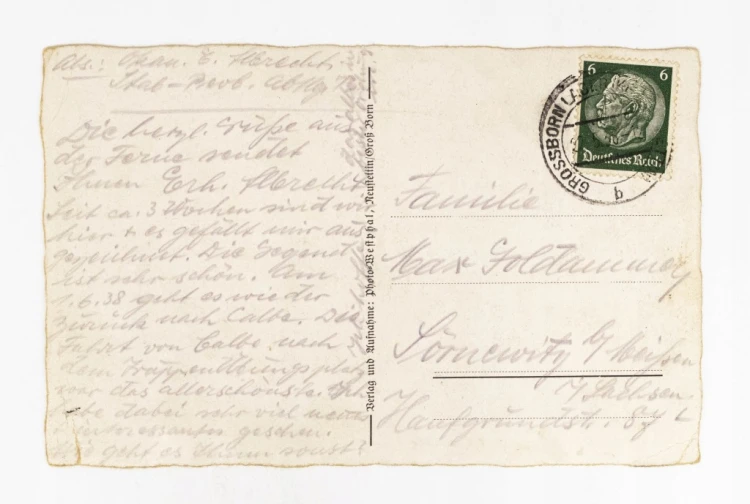 Abs.: E. Albrecht
Stab-
Die herzl. Grüße aus
der Ferne sendet
Ihnen Erh. Albrecht
Seit ca. 3 Wochen sind wir
hier + es gefällt mir aus
gezeichnet. Die Gegend
ist sehr schön. Am
1.6.38 geht es wieder
zurück nach Calbe. Die
Fahrt von Calbe nach
dem Truppenübungsplatz
war das allerschönste. Ich
habe dabei sehr viel neues
interessantes gesehen.
Wie geht es Ihnen sonst?
Verlag und Aufnahme: Photo Westphal, Neustettin/Groß Born
6 6
Deutsches Reich
GROSSBORN
b
Familie
Max Goldammer
Sörnewitz b/ Meißen
i/ Sachsen
Haufgrundst. 87